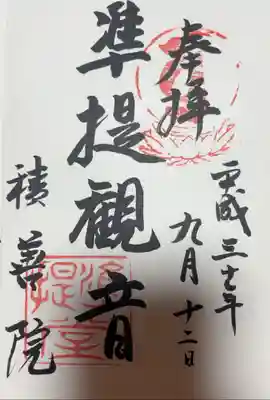 奉拝
平成三十年
九月十二日
準提観音
積善院
準提堂